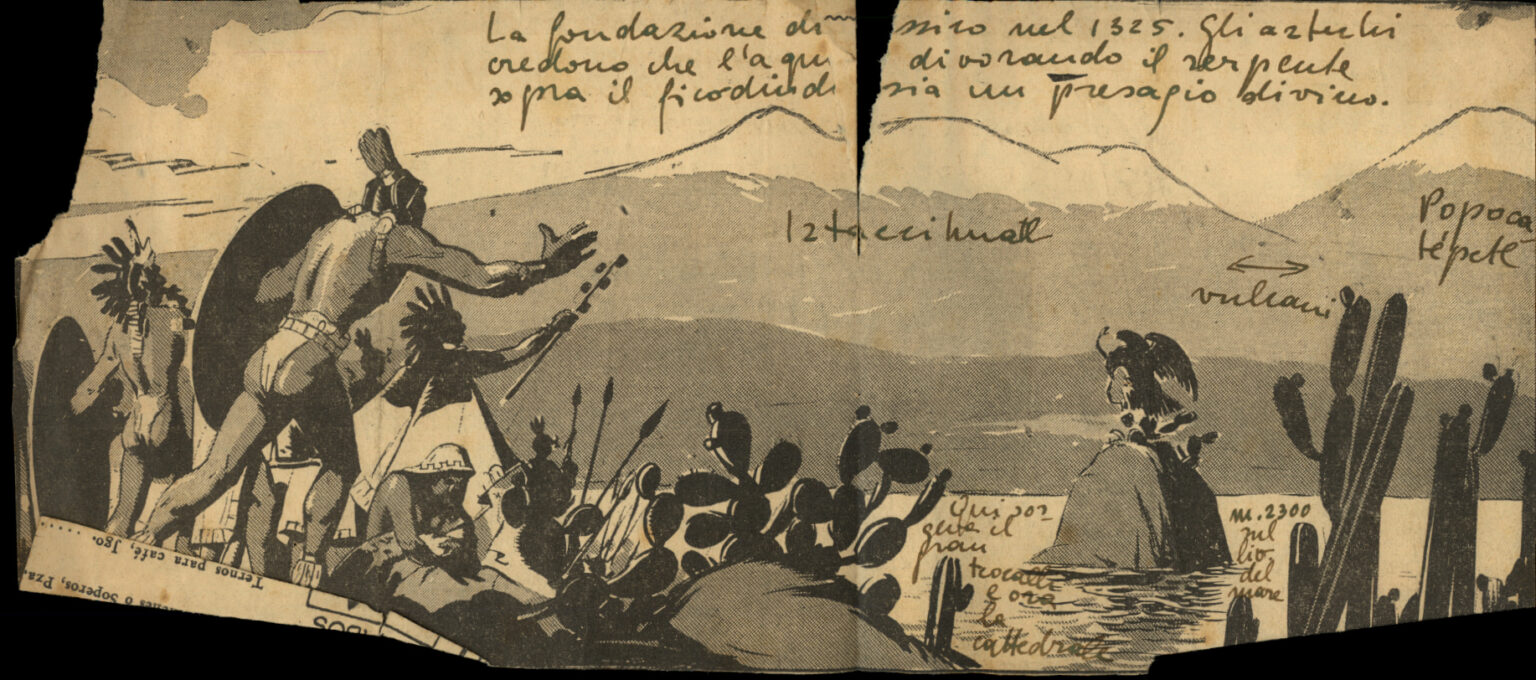 La fondazione di ssico nel 1325. Gli aztechi
credono che l'aqu divorando il serpente
sopra il ficodind sia un presagio divino.
Iztaccihuatl
Popoca
tépetl
vulcani
Qui sor-
geva il
gran
teocalli
e ora
la
cattedrale
m. 2300
sul
liv.
del
mare
Ternos para café, Jgo.
enes o Soperos, Pza.